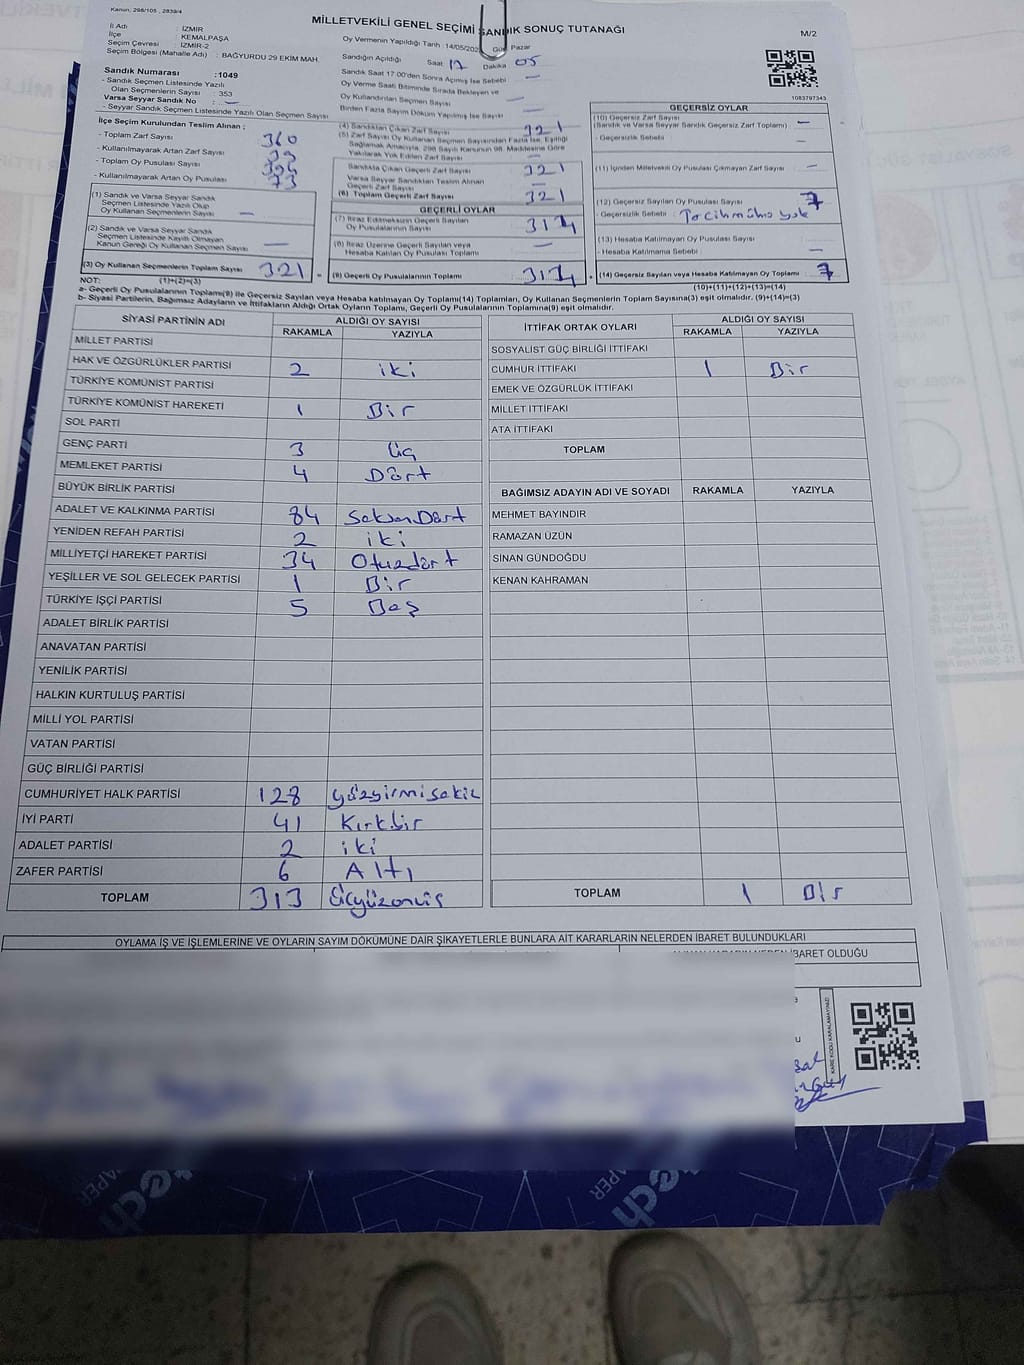 Kanun; 298/105 , 2839/4
MİLLETVEKİLİ GENEL SEÇİMİ SANDIK SONUÇ TUTANAĞI
M/2
İl Adı : İZMİR
İlçe : KEMALPAŞA
Seçim Çevresi : İZMİR-2
Seçim Bölgesi (Mahalle Adı) : BAĞYURDU 29 EKİM MAH.
Oy Vermenin Yapıldığı Tarih :14/05/202 Gün Pazar
Sandığın Açıldığı Saat 17 Dakika 05
1083797343
Sandık Numarası :1049
- Sandık Seçmen Listesinde Yazılı
Olan Seçmenlerin Sayısı : 353
Varsa Seyyar Sandık No : —
- Seyyar Sandık Seçmen Listesinde Yazılı Olan Seçmen Sayısı
Sandık Saat 17.00'den Sonra Açılmış İse Sebebi —
Oy Verme Saati Bitiminde Sırada Bekleyen ve
Oy Kullandırılan Seçmen Sayısı —
Birden Fazla Sayım Döküm Yapılmış İse Sayısı —
İlçe Seçim Kurulundan Teslim Alınan ;
- Toplam Zarf Sayısı 360
- Kullanılmayarak Artan Zarf Sayısı
- Toplam Oy Pusulası Sayısı
- Kullanılmayarak Artan Oy Pusulası 73
(1) Sandık ve Varsa Seyyar Sandık
Seçmen Listesinde Yazılı Olup
Oy Kullanan Seçmenlerin Sayısı —
(2) Sandık ve Varsa Seyyar Sandık
Seçmen Listesinde Kayıtlı Olmayan
Kanun Gereği Oy Kullanan Seçmen Sayısı —
(3) Oy Kullanan Seçmenlerin Toplam Sayısı 321
(4) Sandıktan Çıkan Zarf Sayısı 321
(5) Zarf Sayısı Oy Kullanan Seçmen Sayısından Fazla İse, Eşitliği
Sağlamak Amacıyla, 298 Sayılı Kanunun 98. Maddesine Göre
Yakılarak Yok Edilen Zarf Sayısı —
Sandıkta Çıkan Geçerli Zarf Sayısı 321
Varsa Seyyar Sandıktan Teslim Alınan
Geçerli Zarf Sayısı —
(6) Toplam Geçerli Zarf Sayısı 321
GEÇERLİ OYLAR
(7) İtiraz Edilmeksizin Geçerli Sayılan
Oy Pusulalarının Sayısı 314
(8) İtiraz Üzerine Geçerli Sayılan veya
Hesaba Katılan Oy Pusulası Toplamı —
(9) Geçerli Oy Pusulalarının Toplamı 314
GEÇERSİZ OYLAR
(10) Geçersiz Zarf Sayısı
(Sandık ve Varsa Seyyar Sandık Geçersiz Zarf Toplamı) —
- Geçersizlik Sebebi —
(11) İçinden Milletvekili Oy Pusulası Çıkmayan Zarf Sayısı —
(12) Geçersiz Sayılan Oy Pusulası Sayısı 7
- Geçersizlik Sebebi : Tercih mührü yok
(13) Hesaba Katılmayan Oy Pusulası Sayısı —
- Hesaba Katılmama Sebebi —
(14) Geçersiz Sayılan veya Hesaba Katılmayan Oy Toplamı 7
NOT: (1)+(2)=(3)
(10)+(11)+(12)+(13)=(14)
a- Geçerli Oy Pusulalarının Toplamı(9) ile Geçersiz Sayılan veya Hesaba katılmayan Oy Toplamı(14) Toplamları, Oy Kullanan Seçmenlerin Toplam Sayısına(3) eşit olmalıdır. (9)+(14)=(3)
b- Siyasi Partilerin, Bağımsız Adayların ve İttifakların Aldığı Ortak Oyların Toplamı, Geçerli Oy Pusulalarının Toplamına(9) eşit olmalıdır.
SİYASİ PARTİNİN ADI ALDIĞI OY SAYISI
RAKAMLA YAZIYLA
MİLLET PARTİSİ
HAK VE ÖZGÜRLÜKLER PARTİSİ 2 iki
TÜRKİYE KOMÜNİST PARTİSİ
TÜRKİYE KOMÜNİST HAREKETİ 1 Bir
SOL PARTİ
GENÇ PARTİ 3 Üç
MEMLEKET PARTİSİ 4 Dört
BÜYÜK BİRLİK PARTİSİ
ADALET VE KALKINMA PARTİSİ 84 SeksenDört
YENİDEN REFAH PARTİSİ 2 iki
MİLLİYETÇİ HAREKET PARTİSİ 34 Otuzdört
YEŞİLLER VE SOL GELECEK PARTİSİ 1 Bir
TÜRKİYE İŞÇİ PARTİSİ 5 Beş
ADALET BİRLİK PARTİSİ
ANAVATAN PARTİSİ
YENİLİK PARTİSİ
HALKIN KURTULUŞ PARTİSİ
MİLLİ YOL PARTİSİ
VATAN PARTİSİ
GÜÇ BİRLİĞİ PARTİSİ
CUMHURİYET HALK PARTİSİ 128 yüzyirmisekiz
İYİ PARTİ 41 Kırkbir
ADALET PARTİSİ 2 iki
ZAFER PARTİSİ 6 Altı
TOPLAM 313 Üçyüzonüç
İTTİFAK ORTAK OYLARI ALDIĞI OY SAYISI
RAKAMLA YAZIYLA
SOSYALİST GÜÇ BİRLİĞİ İTTİFAKI
CUMHUR İTTİFAKI 1 Bir
EMEK VE ÖZGÜRLÜK İTTİFAKI
MİLLET İTTİFAKI
ATA İTTİFAKI
TOPLAM
BAĞIMSIZ ADAYIN ADI VE SOYADI RAKAMLA YAZIYLA
MEHMET BAYINDIR
RAMAZAN ÜZÜN
SİNAN GÜNDOĞDU
KENAN KAHRAMAN
TOPLAM 1 Bir
OYLAMA İŞ VE İŞLEMLERİNE VE OYLARIN SAYIM DÖKÜMÜNE DAİR ŞİKAYETLERLE BUNLARA AİT KARARLARIN NELERDEN İBARET BULUNDUKLARI
İBARET OLDUĞU
KARE KODU KARALAMAYINIZ!